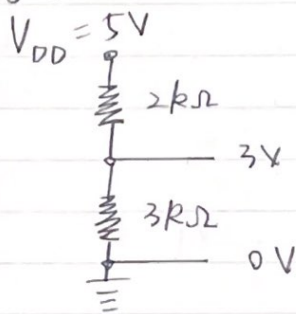 V_DD = 5V
2kΩ
3V
3kΩ
0V